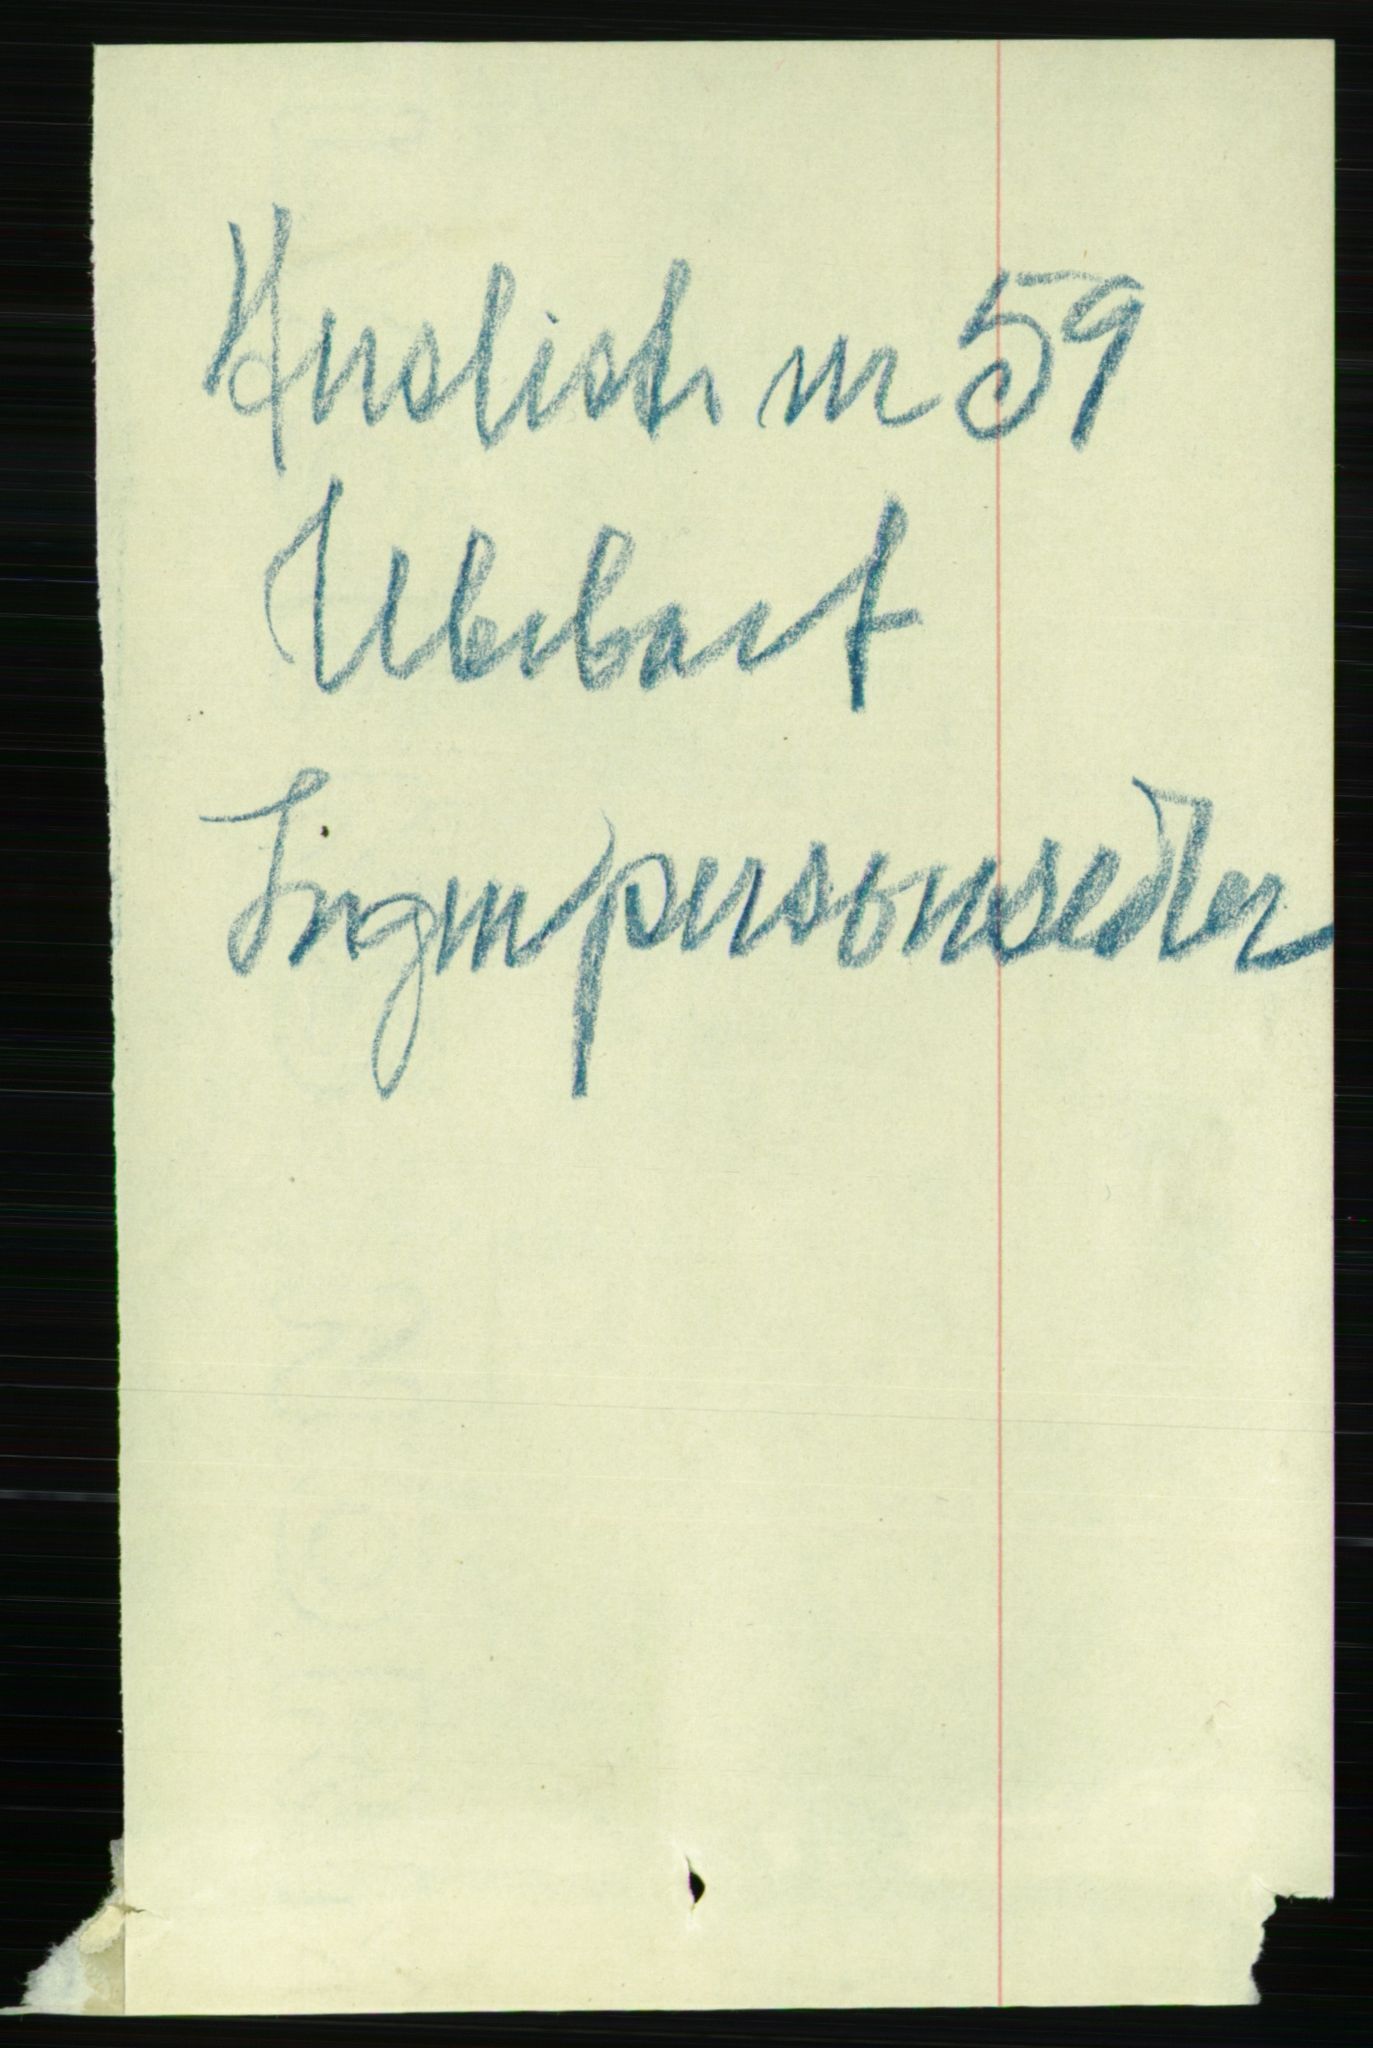 Huslist nr 59
Ubeboet
Ingen personsedler